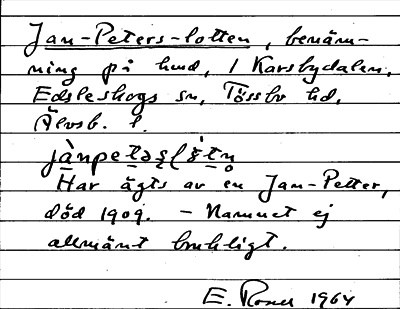 Jan-Peters-lotten, benäm-
ning på hmd, i Karsbydalen,
Edsleskogs sn, Tössbo hd,
Älvsb. l.
jànpetəsl
Har ägts av en Jan-Petter,
död 1909. - Namnet ej
allmänt brukligt.
E. Roner 1964